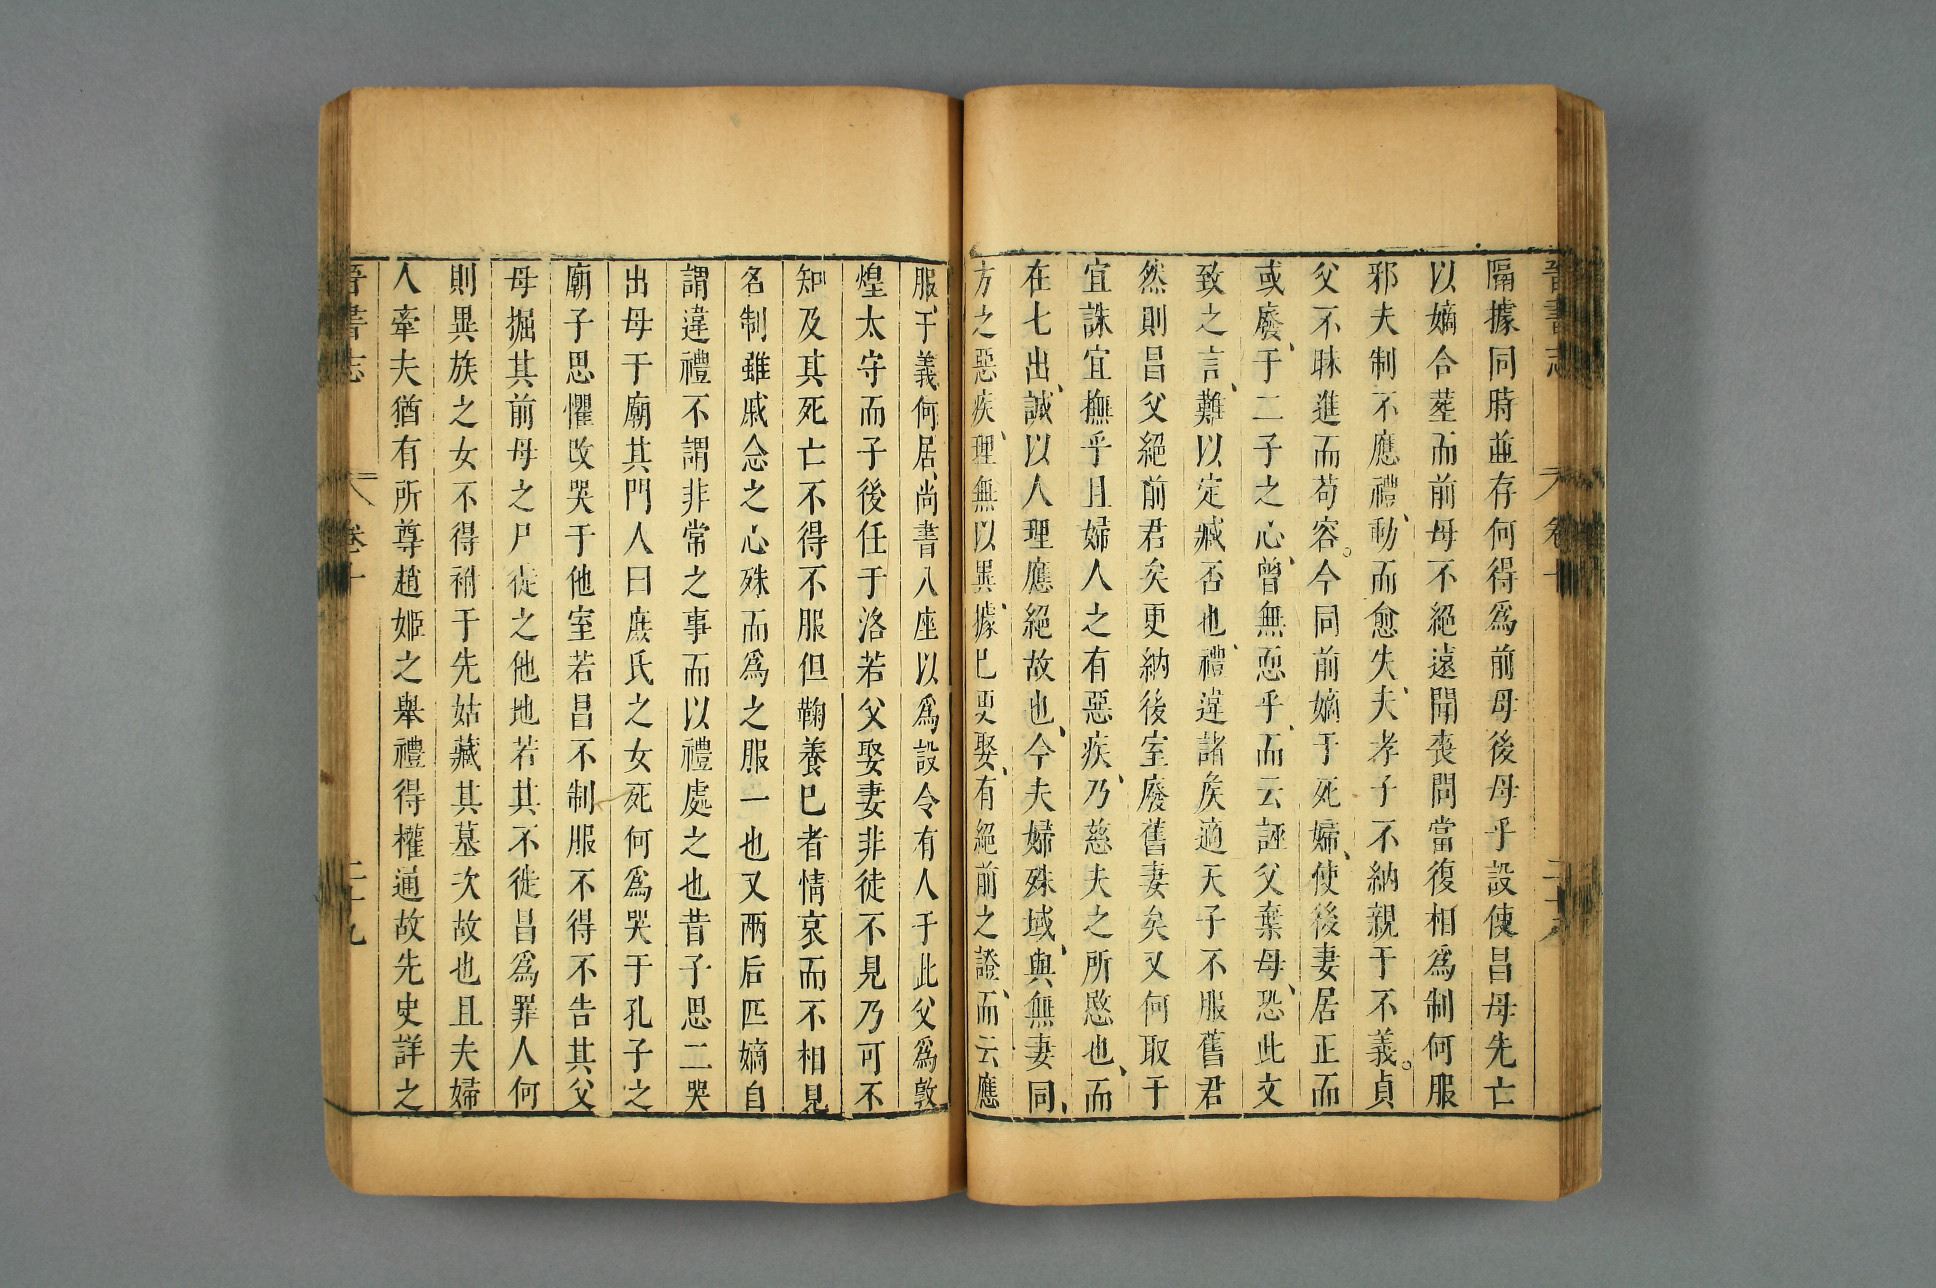 晉書志 卷十
隔據同時並存何得爲前母後母乎設使昌母先亡
以嫡合葬而前母不絕遠聞喪問當復相爲制何服
邪夫制不應禮動而愈失夫孝子不納親于不義貞
父不昧進而苟容今同前嫡于死婦使後妻居正而
或廢于二子之心曾無恧乎而云誣父棄母恐此文
致之言難以定臧否也禮違諸矦適天子不服舊君
然則昌父絕前君矣更納後室廢舊妻矣又何取于
宜誅宜撫乎且婦人之有惡疾乃慈夫之所愍也而
在七出誠以人理應絕故也今夫婦殊域與無妻同
方之惡疾理無以異據已更娶有絕前之證而云應
服于義何居尚書八座以爲設令有人于此父爲敦
煌太守而子後任于洛若父娶妻非徒不見乃可不
知及其死亡不得不服但鞠養已者情哀而不相見
名制雖戚念之心殊而爲之服一也又兩后匹嫡自
謂違禮不謂非常之事而以禮處之也昔子思二哭
出母于廟其門人曰庶氏之女死何爲哭于孔子之
廟子思懼改哭于他室若昌不制服不得不告其父
母掘其前母之尸徙之他地若其不徙昌爲罪人何
則異族之女不得祔于先姑藏其墓次故也且夫婦
人牽夫猶有所尊趙姬之舉禮得權通故先史詳之
晉書志 卷十 二十九